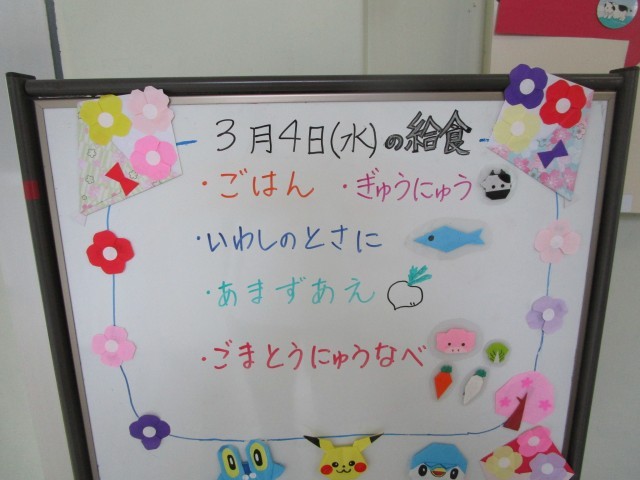 3月4日(水)の給食
・ごはん ・ぎゅうにゅう
・いわしのとさに
・あまずあえ
・ごまとうにゅうなべ